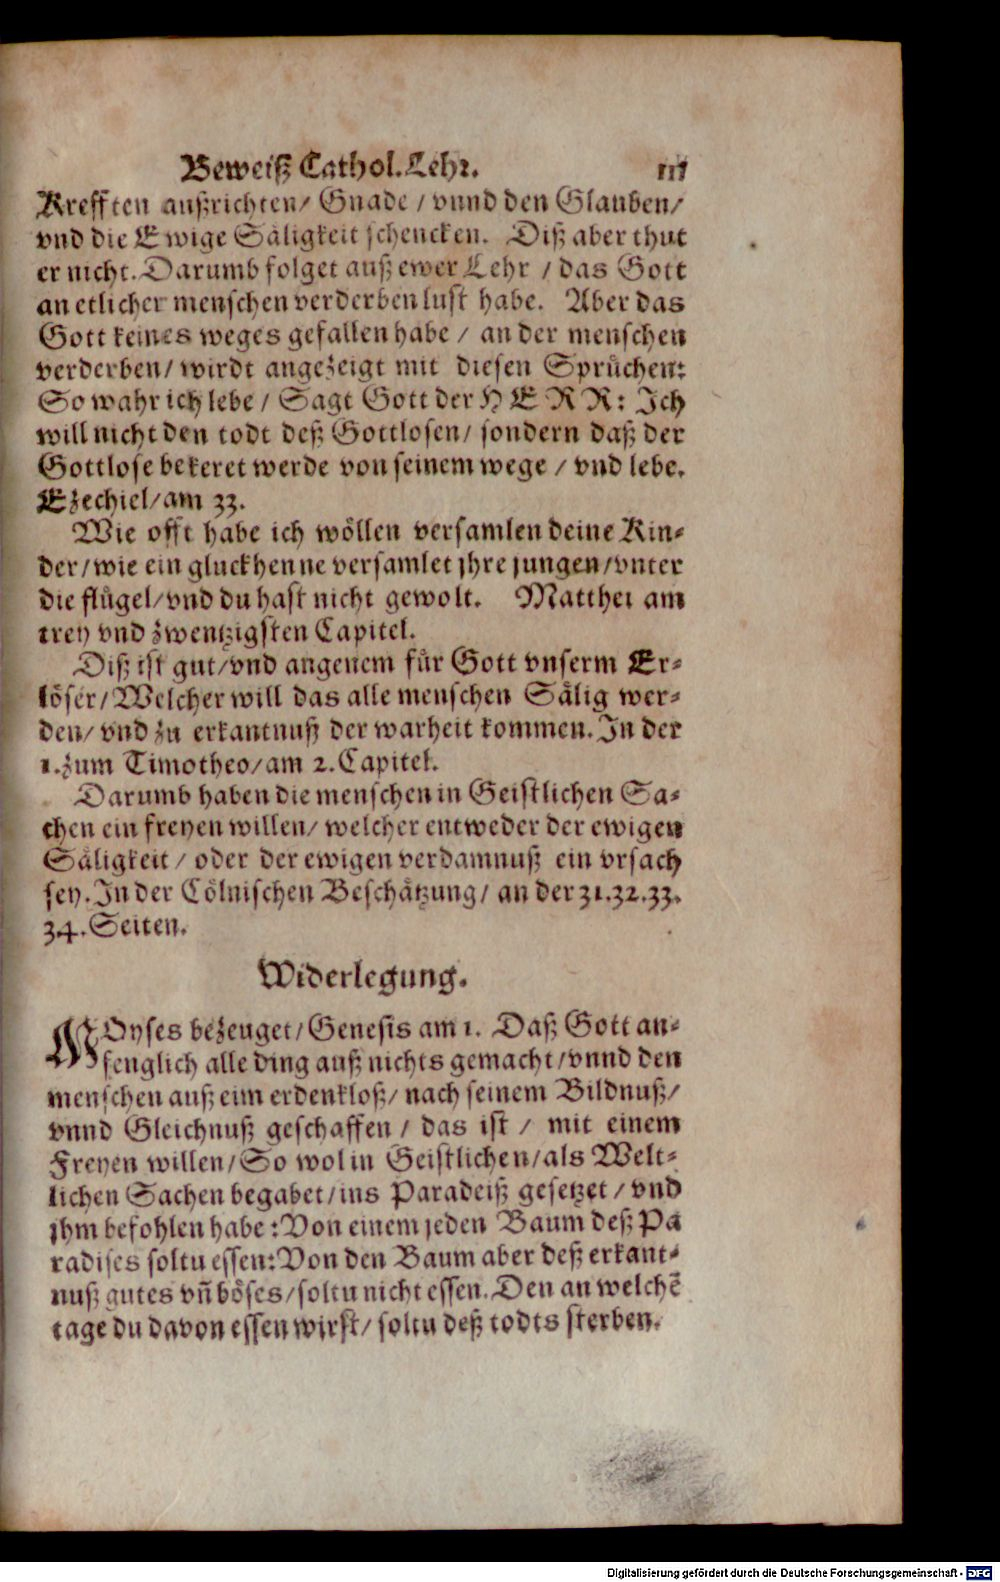 Beweiß Cathol. Lehr. 111
Krefften außrichten/ Gnade / vnnd den Glauben/
vnd die Ewige Säligkeit schencken. Diß aber thut
er nicht. Darumb folget auß ewer Lehr / das Gott
an etlicher menschen verderben lust habe. Aber das
Gott keines weges gefallen habe / an der menschen
verderben/ wirdt angezeigt mit diesen Sprüchen:
So wahr ich lebe / Sagt Gott der HERR: Ich
will nicht den todt deß Gottlosen/ sondern daß der
Gottlose bekeret werde von seinem wege / vnd lebe.
Ezechiel/am 33.
Wie offt habe ich wöllen versamlen deine Kin-
der/wie ein gluckhenne versamlet jhre jungen/vnter
die flügel/vnd du hast nicht gewolt. Matthei am
trey vnd zwentzigsten Capitel.
Diß ist gut/vnd angenem für Gott vnserm Er-
löser/Welcher will das alle menschen Sälig wer-
den/ vnd zu erkantnuß der warheit kommen. In der
1. zum Timotheo/am 2. Capitel.
Darumb haben die menschen in Geistlichen Sa-
chen ein freyen willen/ welcher entweder der ewigen
Säligkeit / oder der ewigen verdamnuß ein vrsach
sey. In der Cölnischen Beschätzung/ an der 31.32.33.
34. Seiten.
Widerlegung.
MOyses bezeuget/Genesis am 1. Daß Gott an-
fenglich alle ding auß nichts gemacht/vnnd den
menschen auß eim erdenkloß/ nach seinem Bildnuß/
vnnd Gleichnuß geschaffen / das ist / mit einem
Freyen willen/So wol in Geistlichen/als Welt-
lichen Sachen begabet/ins Paradeiß gesetzet / vnd
jhm befohlen habe: Von einem jeden Baum deß Pa
radises soltu essen: Von den Baum aber deß erkant-
nuß gutes vñ böses/soltu nicht essen. Den an welchē
tage du davon essen wirst/ soltu deß todts sterben.
Digitalisierung gefördert durch die Deutsche Forschungsgemeinschaft - DFG